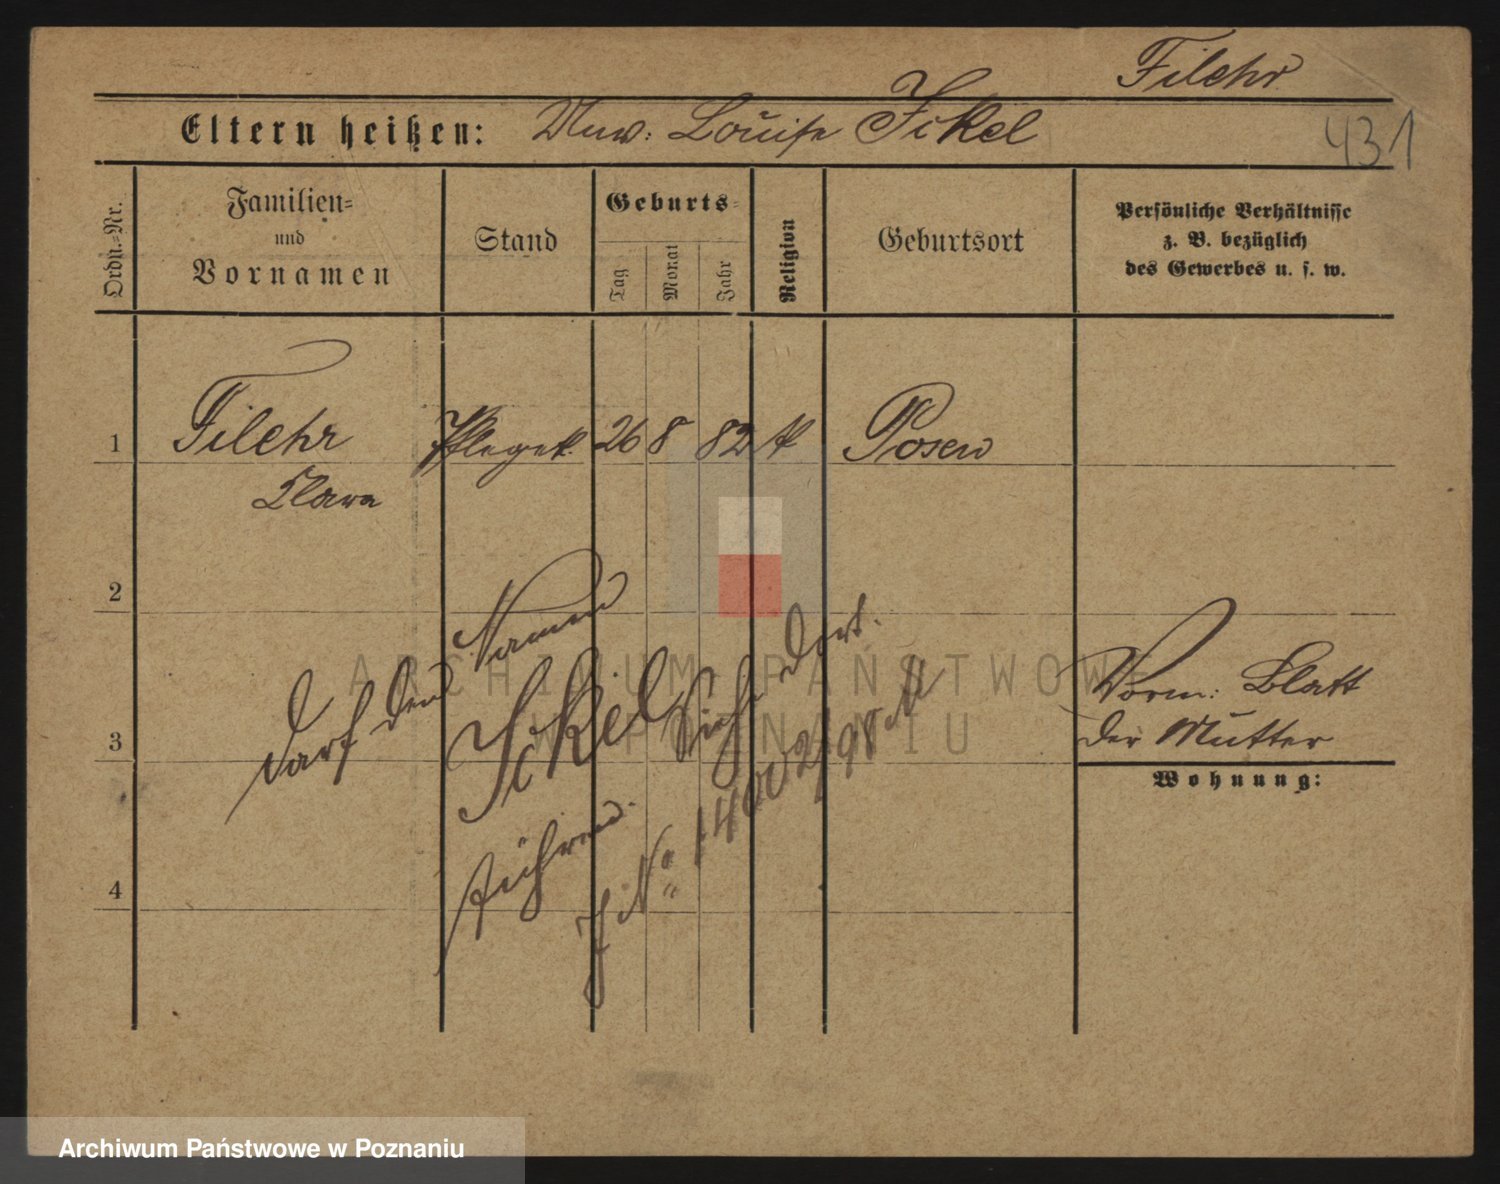 Filehr
Eltern heißen: Wwe. Louise Ickel
431
Ordn.=Nr.
Familien=
und
Vornamen
Stand
Geburts=
Tag
Monat
Jahr
Religion
Geburtsort
Persönliche Verhältnisse
z. B. bezüglich
des Gewerbes u. s. w.
1 Filehr Pflaget. 26 8 82 k Posen
Clara
2
darf den Namen
Ickel
führen.
Siehe dort.
J. No 14002/98 M
3
Vorm: Blatt
der Mutter
Wohnung:
4
ARCHIWUM PAŃSTWOWE
W POZNANIU
Archiwum Państwowe w Poznaniu